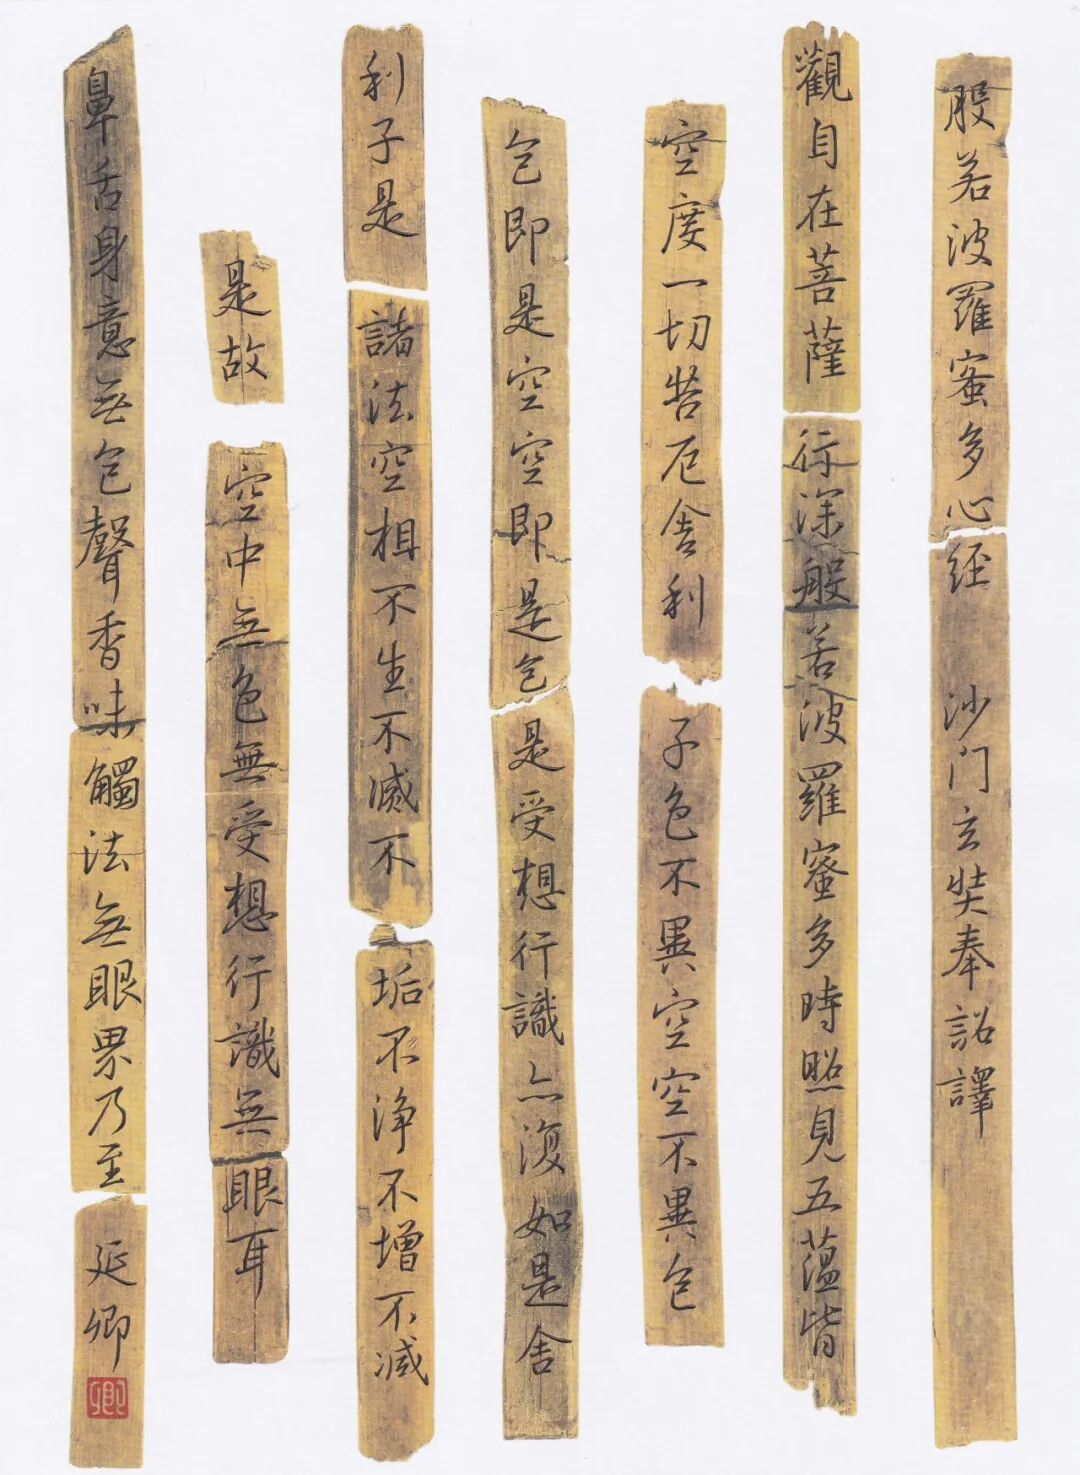 般若波羅蜜多心经 沙门玄奘奉詔譯
觀自在菩薩行深般若波羅蜜多時照見五蘊皆
空度一切苦厄舍利子色不異空空不異色
色即是空空即是色是受想行識亦復如是舍
利子是諸法空相不生不滅不垢不浄不增不減
是故空中無色無受想行識無眼耳
鼻舌身意無色聲香味觸法無眼界乃至 延卿
卿